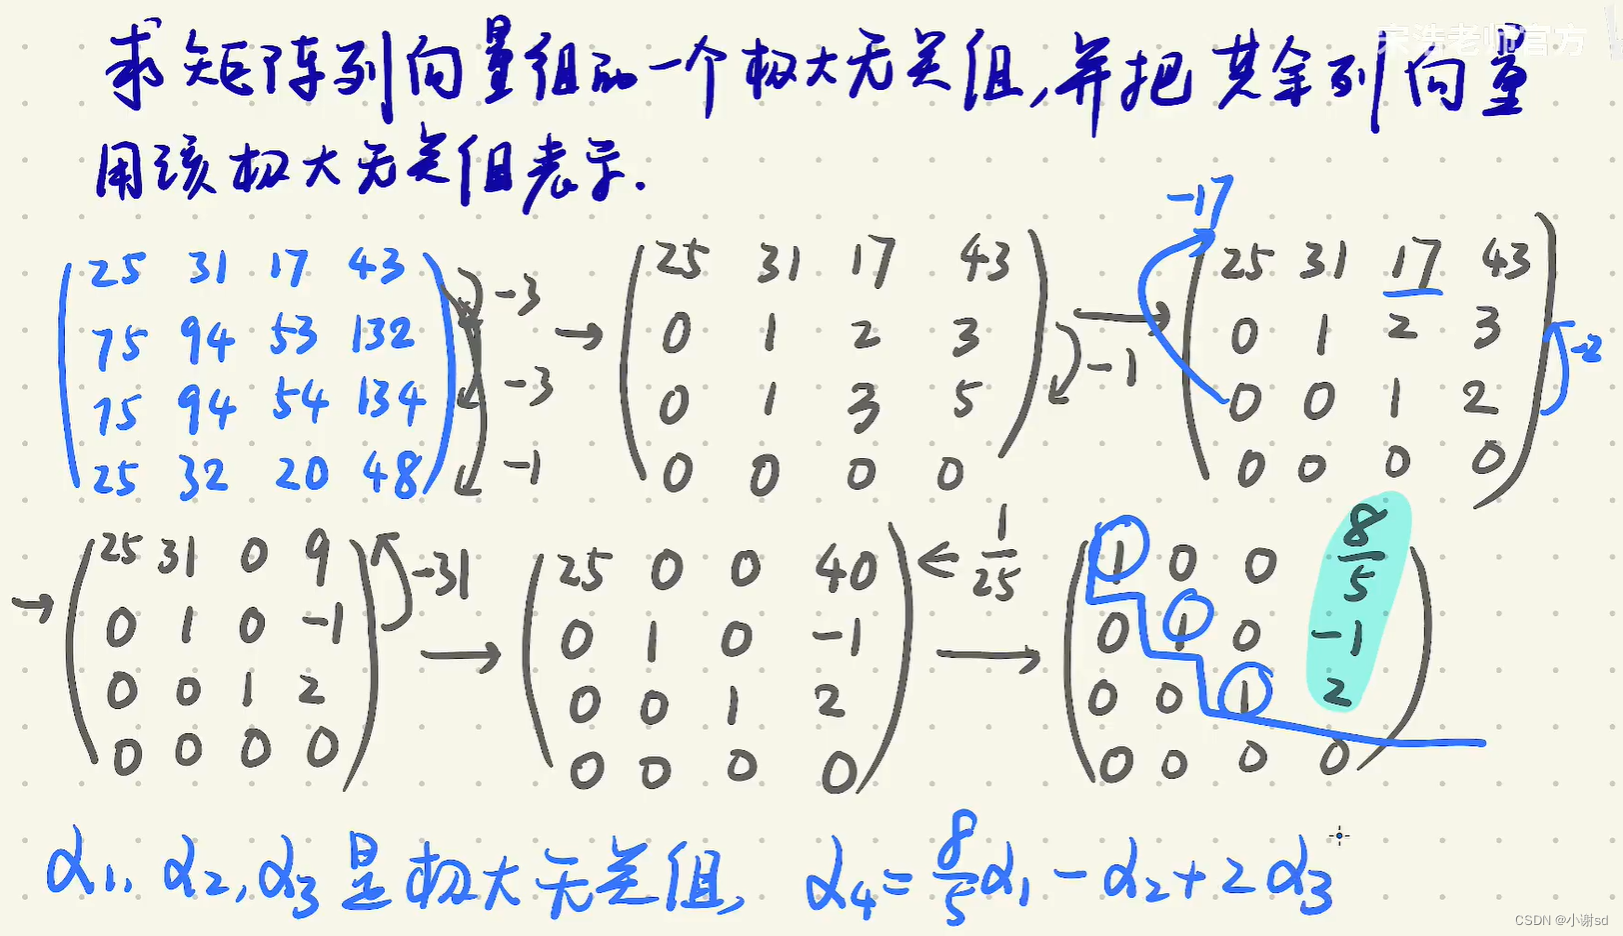 宋浩老师官方
求矩阵列向量组的一个极大无关组,并把其余列向量
用该极大无关组表示.
25 31 17 43
75 94 53 132
75 94 54 134
25 32 20 48
-3
-3
-1
→
25 31 17 43
0 1 2 3
0 1 3 5
0 0 0 0
-1
→
-17
25 31 17 43
0 1 2 3
0 0 1 2
0 0 0 0
-2
→
25 31 0 9
0 1 0 -1
0 0 1 2
0 0 0 0
-31
→
25 0 0 40
0 1 0 -1
0 0 1 2
0 0 0 0
← 1/25
→
1 0 0 8/5
0 1 0 -1
0 0 1 2
0 0 0 0
α1, α2, α3 是极大无关组, α4 = 8/5 α1 - α2 + 2α3
CSDN @小谢sd